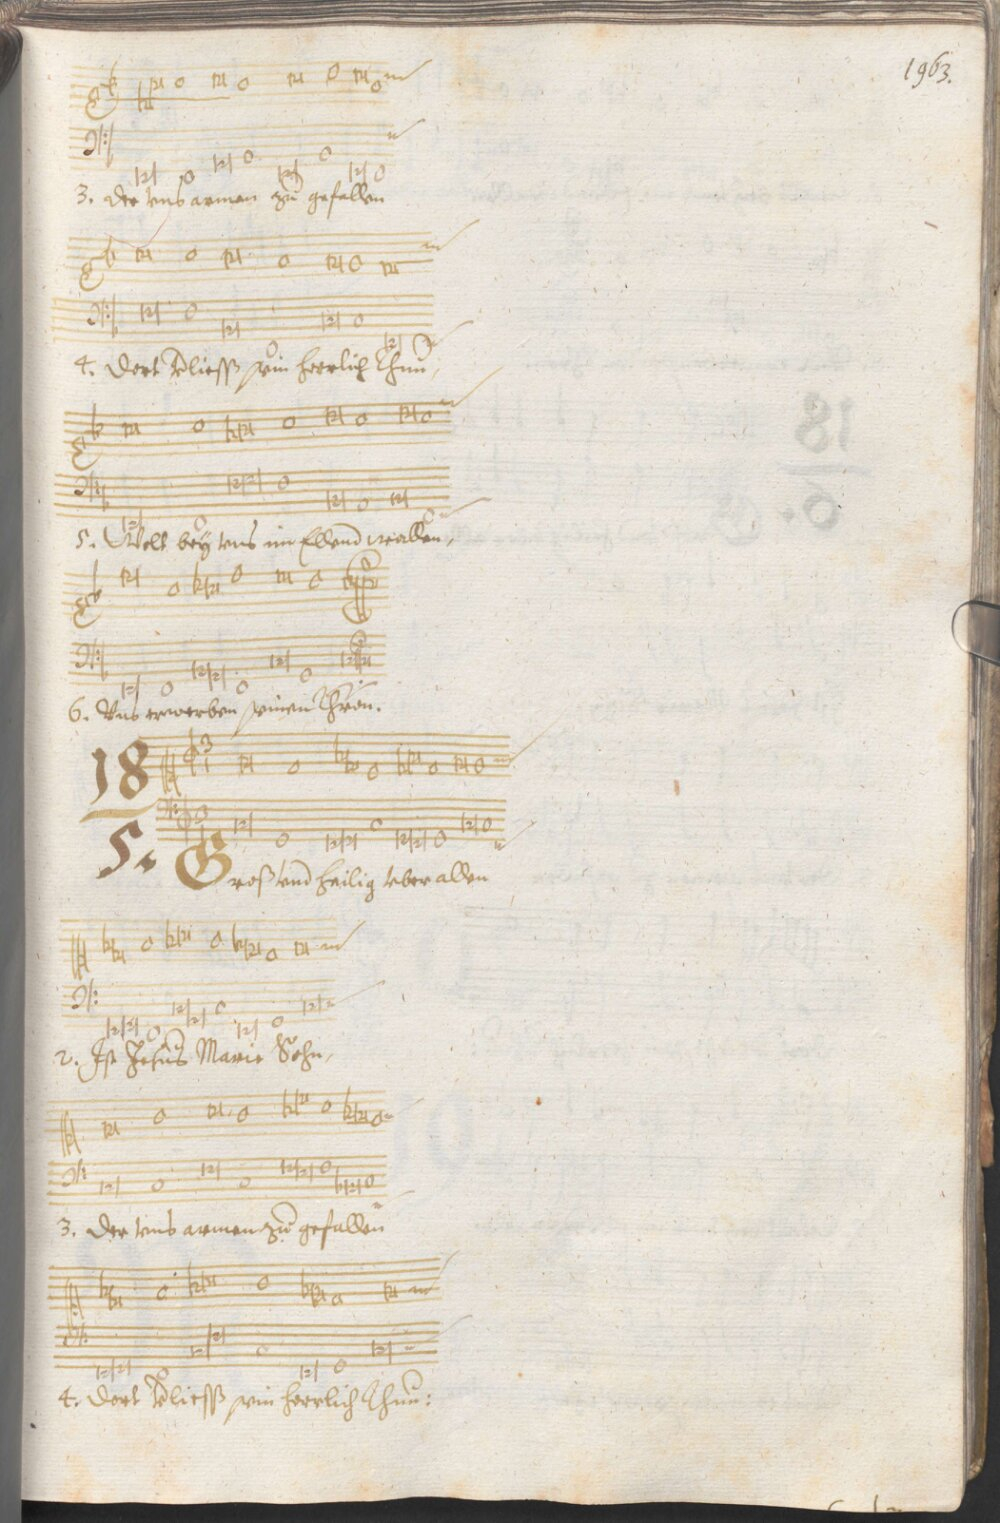 1963.
3. Der vns armen zů gefallen
4. Dort verliesß sein herrlich Thun,
5. Wolt beÿ vns im Ellend wallen,
6. Vns erwerben seinen Thron.
18
5. Groß vnd heilig vber allen
2. Ist Jesus Marie Sohn,
3. Der vns armen zů gefallen
4. Dort verliesß sein herrlich Thun: